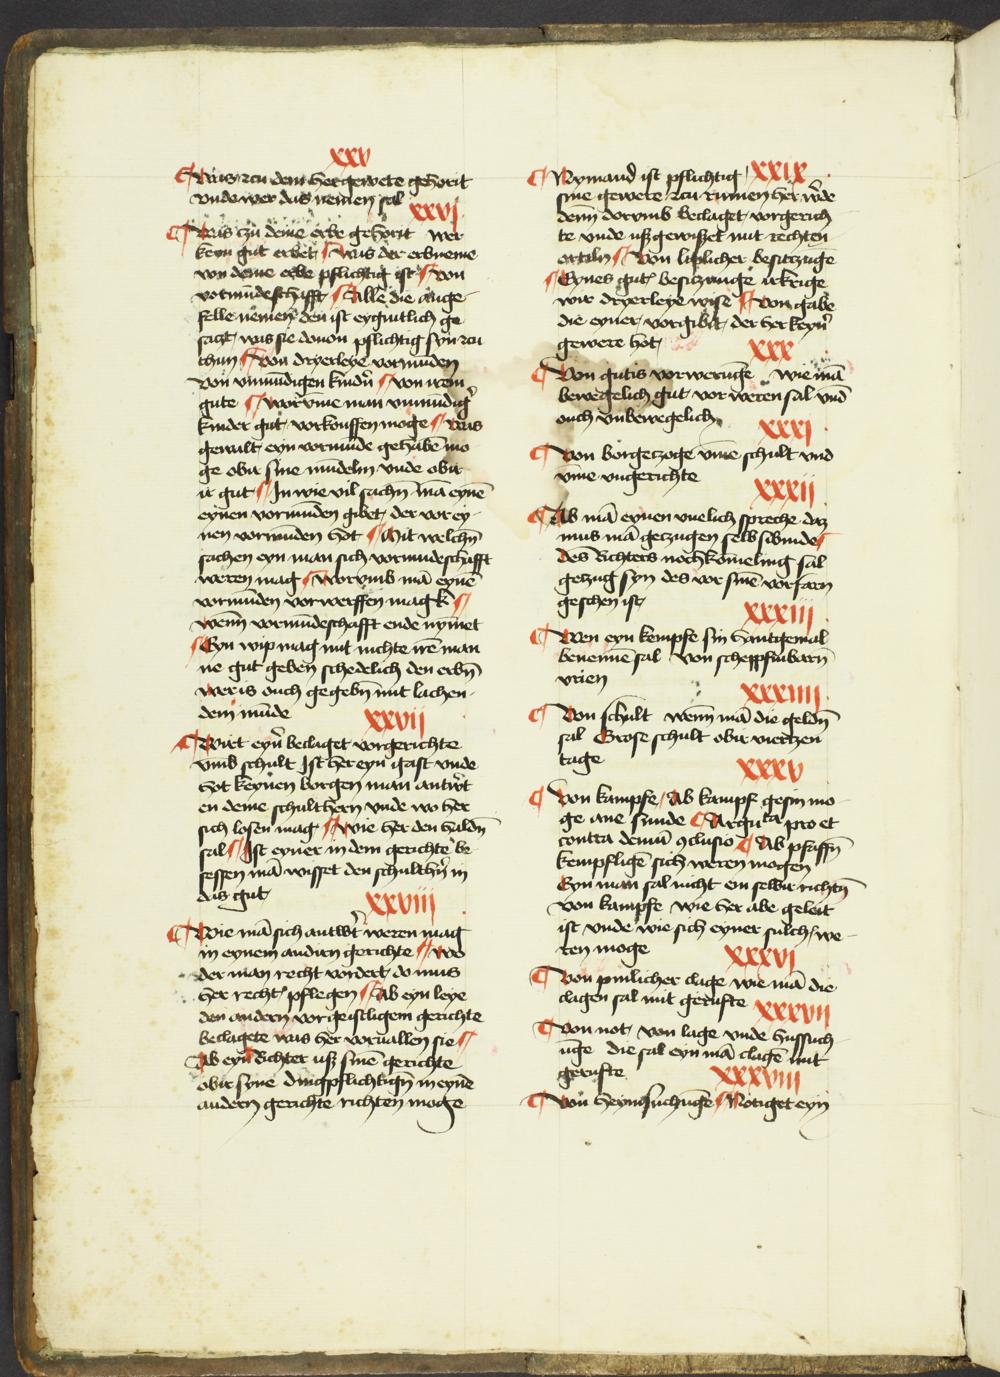 xxv
¶ Was zcu dem Hergewete gehorit
vnde wer das nemen sal xxvi
¶ Was tzu deme erbe gehorit wer
keyn gut erbet ¶ Was der erbneme
von deme erbe pflichtig ist ¶ Von
vormūdeschafft ¶ Alle die ange
felle nemen den ist eygintlich ge
sagt was sie douon pflichtig syn zcu
thun ¶ Von dryerleye vormūden
Von vnmūdigen kindn̄ ¶ von irem
gute ¶ Worvme man vnmūdig̛
kinder gut vorkouffen moge ¶ Was
gewalt eyn vormūde gehaben mo
ge obir sine mūdelin vnde obir
ir gut ¶ In wie vil sachn̄ mā eynē
eynen vormūden gibet der vor ey
nen vormūden hot ¶ Mit welchn̄
sachen eyn man sich vormūdeschafft
weren mag ¶ Worvmb mā eynē
vormūden vorwerffen magk ¶
wenn vormūdeschafft ende nymet
¶ Eyn wip mag mit nichte irē man
ne gut geben schedelich den erbn̄
wer is ouch gegebn̄ mit lachen
dem mūde xxvii
¶ Wirt eyn̄ beclaget vorgerichte
vmb schult Ist her eyn gast vnde
hot keynen borgen man antw̛t
en deme schulthern vnde wo her
sich losen mag ¶ Wie her den haldn̄
sal ¶ Ist eyner in dem gerichte be
sessen mā wisset den schulthn̄ in
das gut xxviii
¶ Wie mā sich antw̛t weren mag
in eynem andirn gerichte ¶ Wo
der man recht vordert do mus
her recht pflegen ¶ Ab eyn leye
den andern vor geistligem gerichte
beclagete was her voruallen sie ¶
Ab eyn Richter uß sine gerichte
obir syne dingpflichtign̄ in eynē
andern gerichte richten moge
¶ Nymand ist pflichtig xxix
sine gewere zcu rumen her w̛de
denn dorvmb beclaget vorgerich
te vnde uß gewißet mit rechten
ortiln ¶ Von liplicher besitczuge
¶ Eynes gut̛ besitzunge irkrige
wir dryerleye wise ¶ Von gabe
die eyner vorgibit der her keyn̄
gewere hot xxx
¶ Von gutis vorwerunge wie mā
bewegelich gut vor weren sal vnd
ouch vnbewegelich xxxi
¶ Von borgeczoge vmē schult vnd
vmē vngerichte
xxxii
¶ Ab mā eynen vnelich spreche daz
mus mā geczugen selb sibinde ¶
Des Richters nochkomeling sal
geczug syn des vor sinē vorfarn
geschen ist xxxiii
¶ Wen eyn kempfe sin hantgemal
benennē sal Von scheppfinbarn̄
vrien
xxxiiii
¶ Von schult wenn mā die geldn̄
sal Grose schult obir viertzen
tage
xxxv
¶ Von kampfe Ab kampf gesin mo
ge ane sunde ¶ Argu̅ta pro et
contra demū ꝯclusio ¶ Ab pfaffn̄
kempfligē sich weren mogen
Eyn man sal nicht em selbir richtn̄
Von kampfe wie her abe geleit
ist vnde wie sich eyner sulch we
ren moge xxxvi
¶ Von pinlicher clage wie mā die
clagen sal mit gerufte xxxvii
¶ Von not von lage vnde hussuch
uge die sal eyn mā clagē mit
gerufte xxxviii
¶ Von heymsuchuge ¶ Notiget eyn